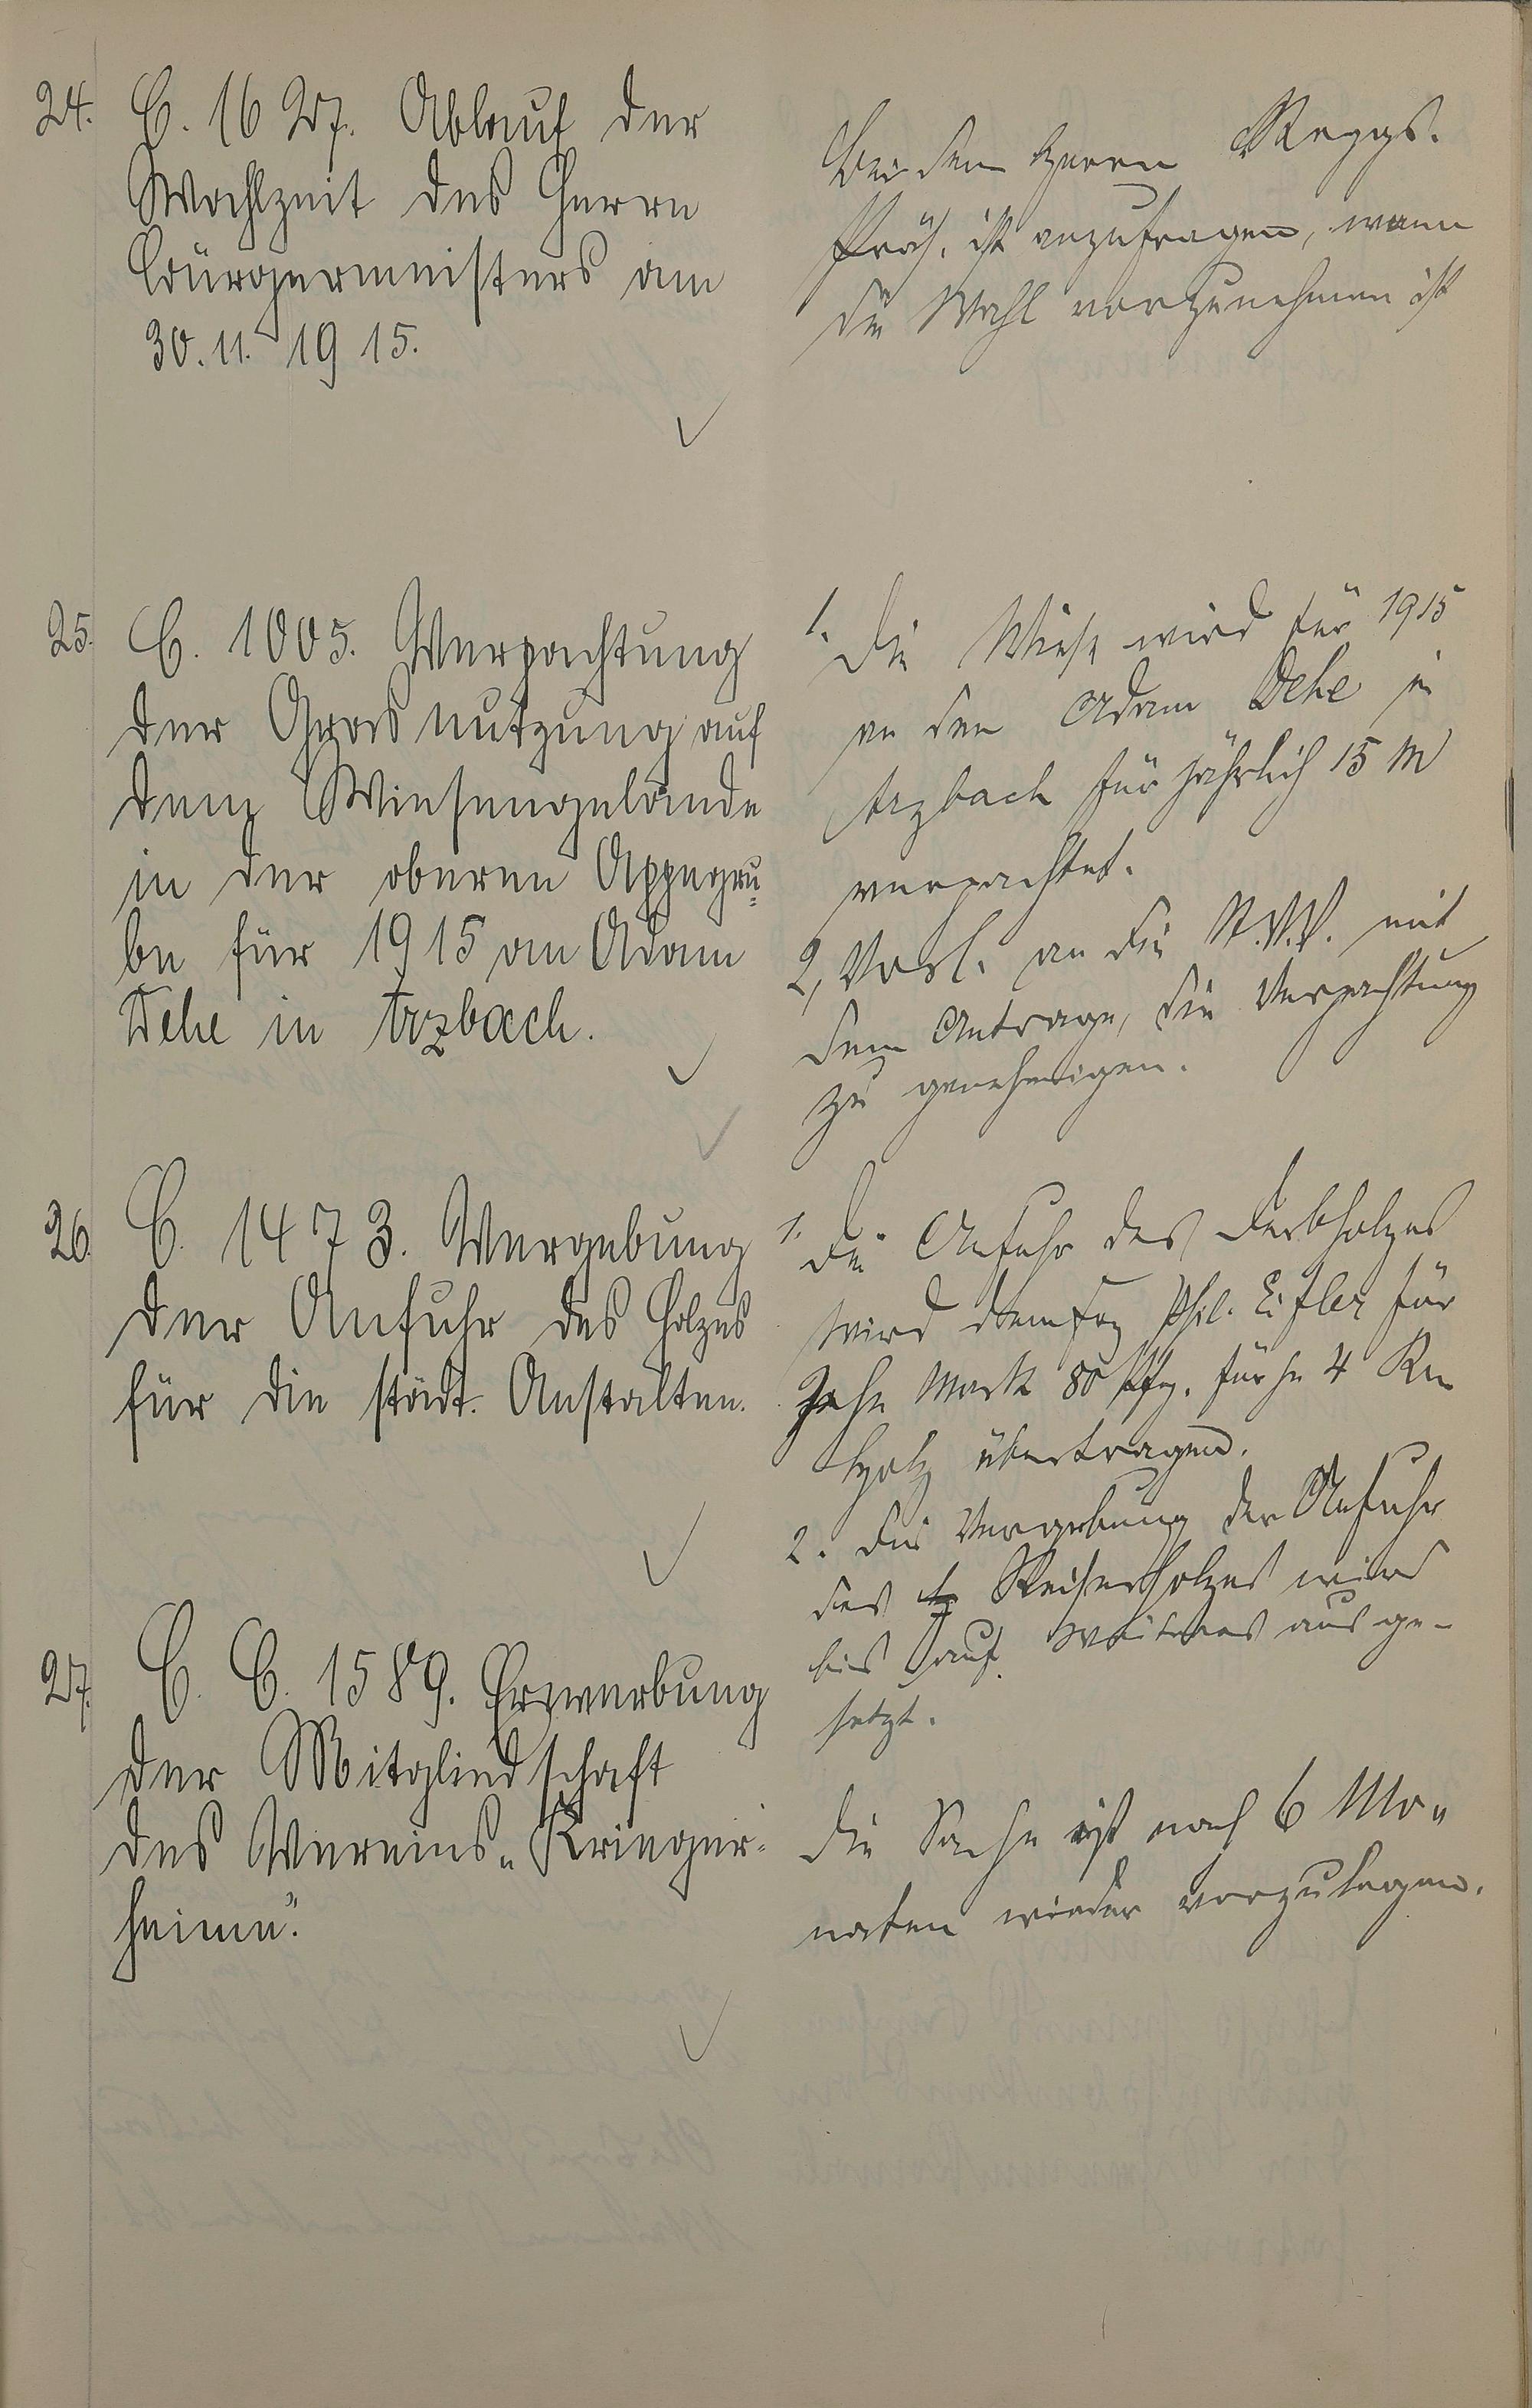 24. C. 1627. Ablauf der
Wahlzeit des Herrn
Bürgermeisters am
30.11. 1915.
Bei dem Herrn Reggs.
Präs. ist anzufragen, wann
die Wahl vorzunehmen ist
25. C. 1005. Verpachtung
der Grasnutzung auf
dem Wiesengelände
in der oberen Appegru-
be für 1915 an Adam
Dehe in Arzbach.
1. Die Wiese wird für 1915
an den Adam Dehe in
Arzbach für jährlich 15 M
verpachtet.
2, Vorl. an die St.V.V. mit
dem Antrage, die Verpachtung
zu genehmigen.
26. C. 1473. Vergebung
der Anfuhr des Holzes
für die städt. Anstalten.
1. Die Anfuhr des Derbholzes
wird dem Phil. Eifler für
Zehn Mark 80 Pfg. für je 4 Rm
Holz übertragen.
2. Die Vergebung der Anfuhr
des Reiserholzes wird
bis auf Weiteres ausge-
setzt.
27. C. C. 1589. Erwerbung
der Mitgliedschaft
des Vereins „Krieger-
heime".
Die Sache ist nach 6 Mo-
naten wieder vorzulegen.